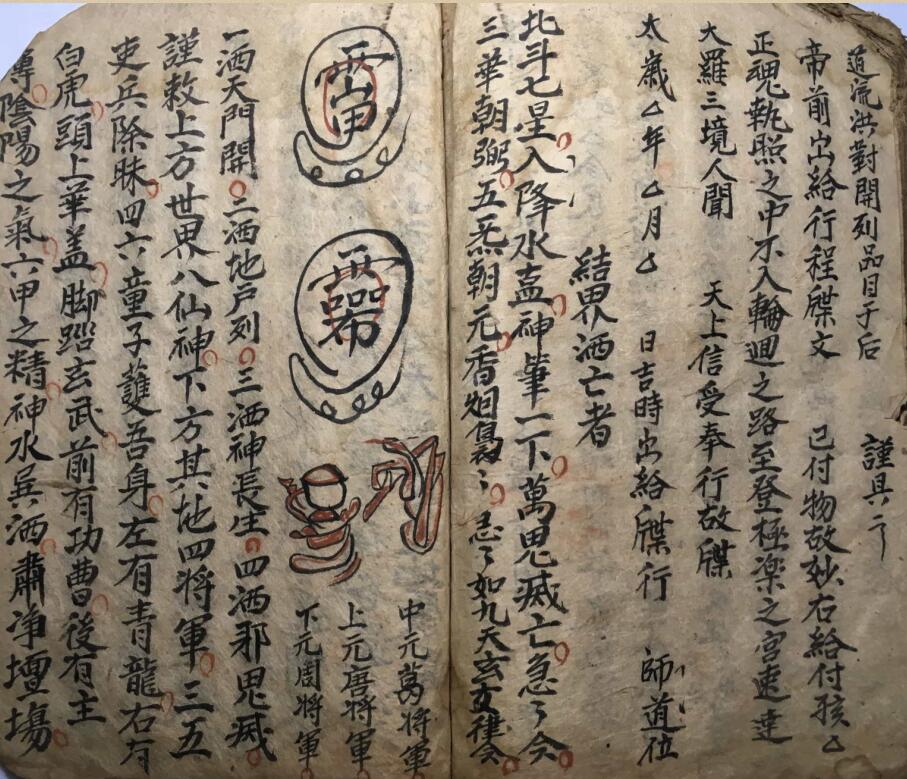 道流洪對開列品目于后 謹具
帝前出給行程牒文 已付物故妙右給付孩厶
正魂執照之中不入輪迴之路至登極楽之宮速達
大羅三境人聞 天上信受奉行故牒
太歲厶年厶月厶 日吉時出給牒行 師道位
結界洒亡者
北斗七星入降水盂神筆一下萬鬼滅亡急〻令
三華朝
五炁朝元香烟裊〻急〻如九天玄女律令
中元葛將軍
上元唐將軍
下元周將軍
一洒天門開二洒地户列三洒神長生四洒邪鬼滅
謹敕上方世界八仙神下方其地四将軍三五
吏兵除昧四六童子護吾身左有青龍右有
白虎頭上華盖脚踏玄武前有功曹後有主
溥陰陽之氣六甲之精神水吳洒肅净壇場